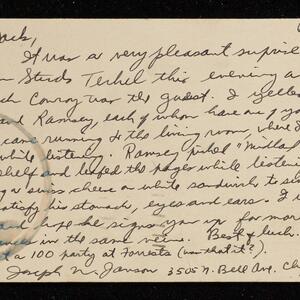 Jack,
It was a very pleasant suprise
Studs Terkel this evening a
Conroy was the guest. I yelled
and Ramsey, each of whom have one of y
came running to the living room, where I
while listening. Ramsey pulled "Midland
shelf and leafed the pages while listenin
a swiss cheese on white sandwich to
satisfy his stomach, eyes and ears. I
and hope he signs you up for more
in the same veine. Best of luck.
a 100 party at Forrests (was that it?).
Joseph N. Janson 3505 N. Bell Ave. Ch